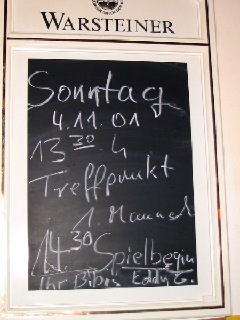 WARSTEINER
Sonntag
4.11.01
13 30 h
Treffpunkt
1. Mannsch
14 30 Spielbeginn
Ihr Eddy